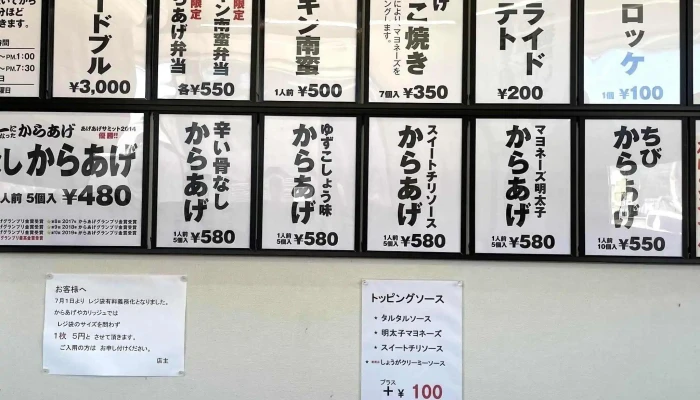 ~PM.1:00
~PM.7:30
ードブル
¥3,000
限定
あげ弁当
限定
ン南蛮弁当
各¥550
キン南蛮
1人前 ¥500
こ焼き
マヨネーズを
7個入 ¥350
ライド
テト
¥200
ロッケ
1個 ¥100
からあげ
あげあげサミット2014
優勝!!
しからあげ
人前 5個入 ¥480
辛い骨なし
からあげ
1人前
5個入 ¥580
ゆずこしょう味
からあげ
1人前
5個入 ¥580
スイートチリソース
からあげ
1人前
5個入 ¥580
マヨネーズ明太子
からあげ
1人前
5個入 ¥580
ちび
からあげ
1人前
10個入 ¥550
お客様へ
7月1日より レジ袋有料義務化となりました。
からあげやカリッジュでは
レジ袋のサイズを問わず
1枚 5円と させて頂きます。
ご入用の方は お申し付けください。
店主
トッピングソース
* タルタルソース
* 明太子マヨネーズ
* スイートチリソース
しょうがクリーミーソース
プラス
+ ¥ 100